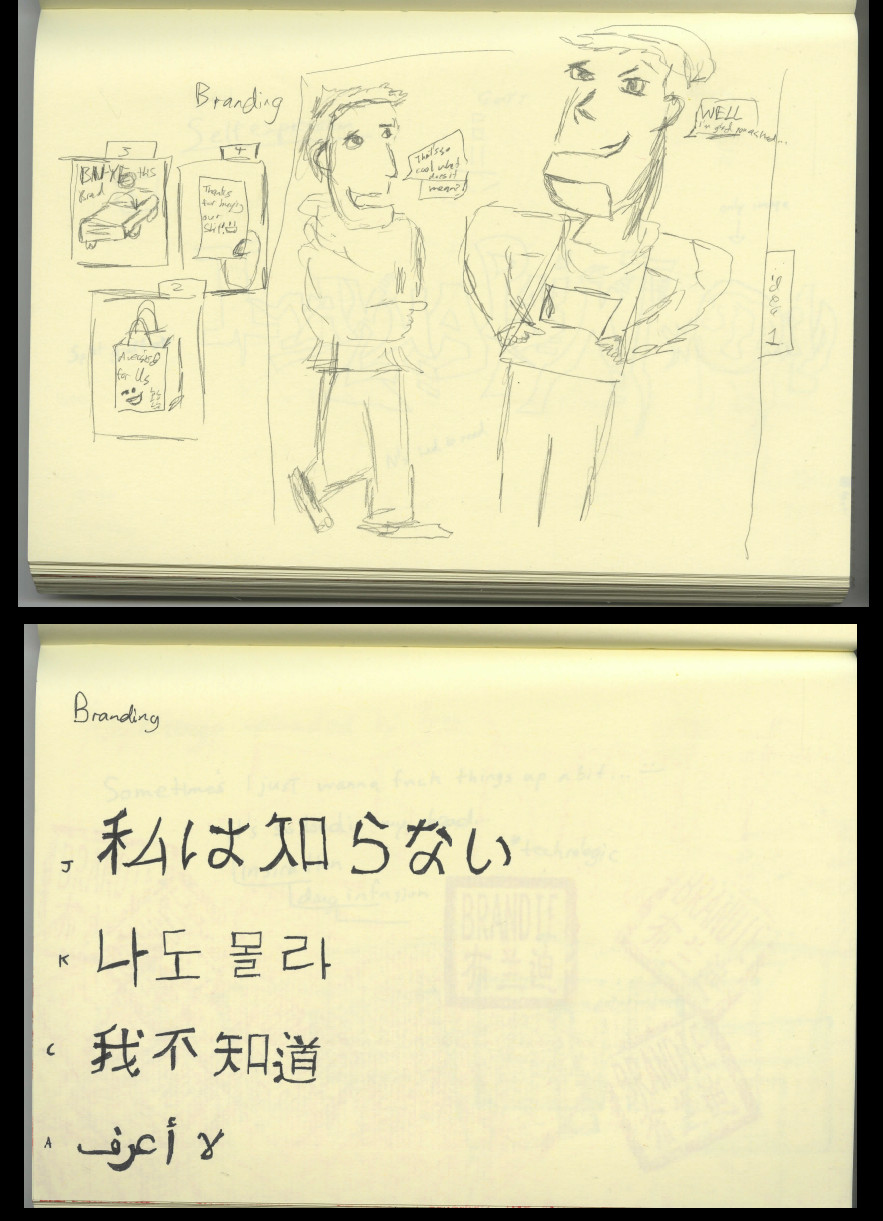 Branding
3
4
BUY this
Thanks
for buying
our
That's so
cool what
does it
mean?
WELL
I'm glad you asked...
2
for Us
1
Branding
J 私は知らない
K 나도 몰라
C 我不知道
A لا أعرف
BRANDIE
布兰迪